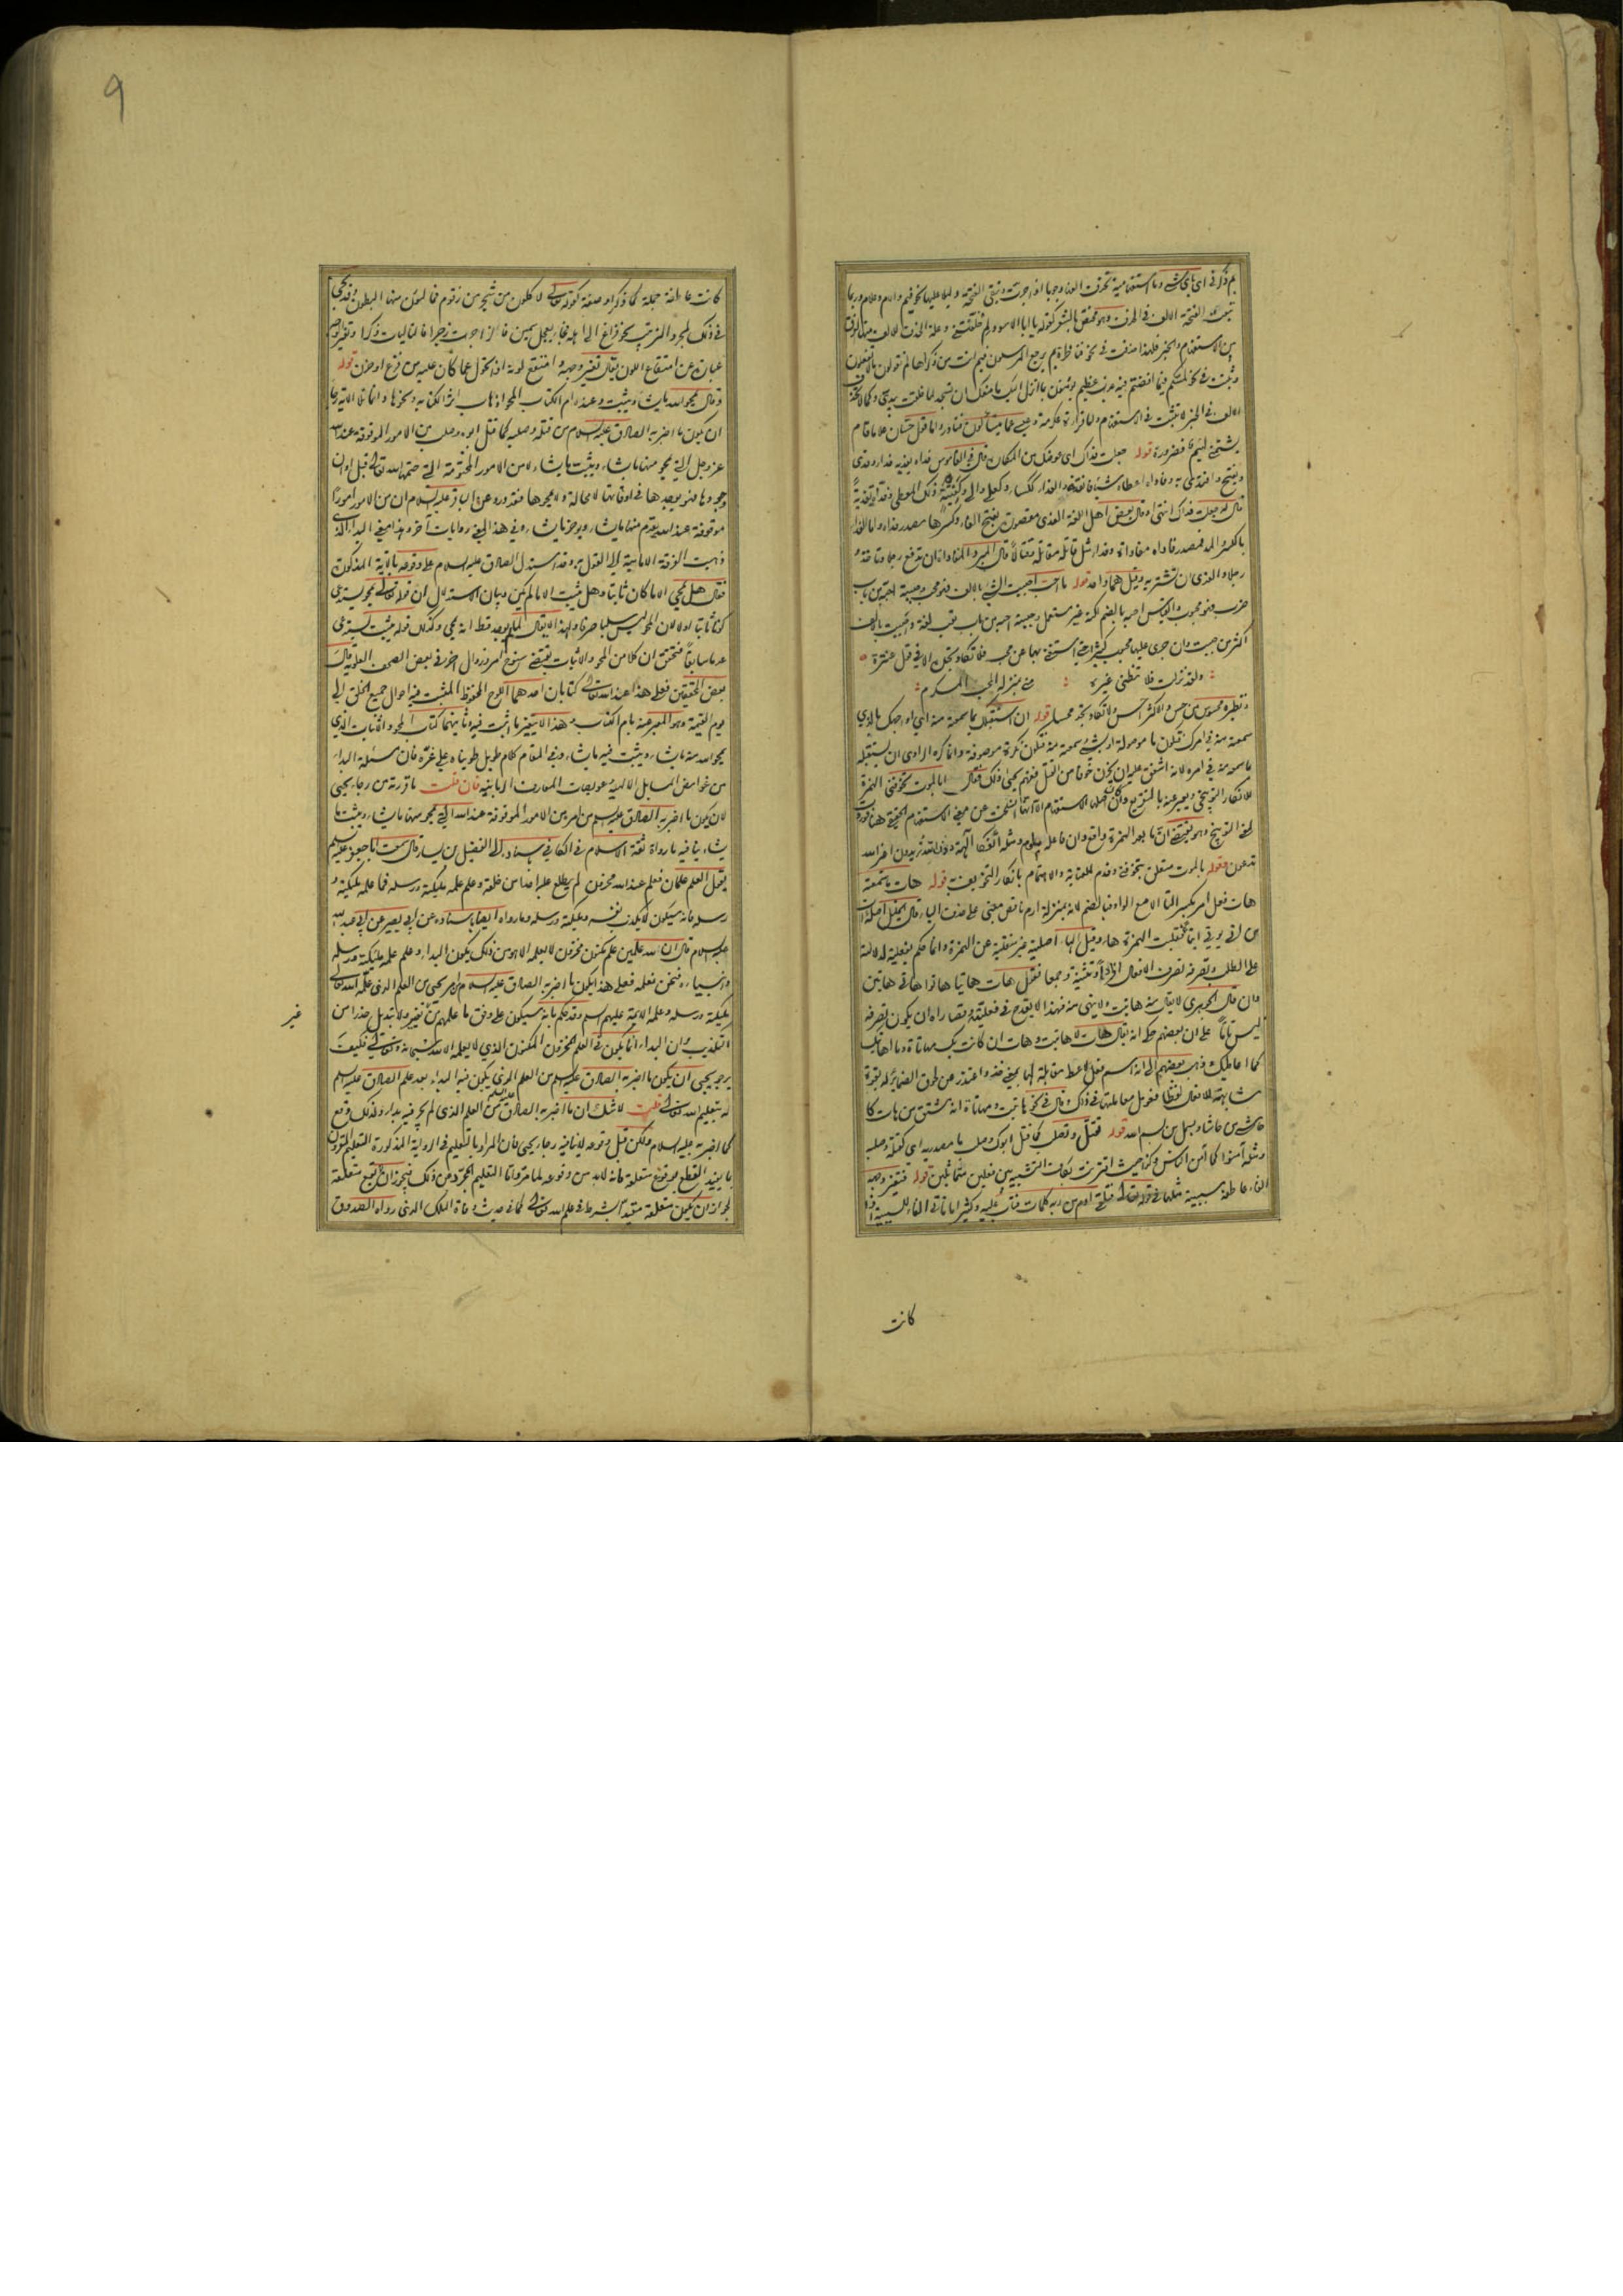 بم ذكر في اي باي شيء وما استفهامية تحذف الفها وجوبا اذا جرت وتبقى الفتحة دليلا عليها نحو فيم والام وعلام وربما
تبعت الفتحة الالف في الحذف وهو مختص بالشعر كقوله يا ابا الاسود لم خلفتني وعلة الحذف الفرق
بين الاستفهام والخبر فلهذا حذفت في نحو فناظرة بم يرجع المرسلون فيم انت من ذكراها لم تقولون ما لا تفعلون
وثبتت في نحو لمسكم فيما افضتم فيه عذاب عظيم يؤمنون بما انزل اليك ما منعك ان تسجد لما خلقت بيدي وكما لا تحذف
الالف في الخبر لا تثبت في الاستفهام واما قراءة عكرمة وعيسى عما يتساءلون فنادر واما قول حسان علاما قام
يشتمني لئيم فضرورة قوله جعلت فداك اي
قال له جعلت فداك انتهى وقال بعض اهل اللغة الفدى مقصورا بفتح الفاء وكسرها مصدر فداه واما الفداء
بالكسر والمد فمصدر فاداه مفاداة وفداء مثل قاتله مقاتلة وقتالا قال المبرد المفاداة ان تدفع رجلا وتاخذ
رجلا والفدى ان تشتريه وقيل هما واحد قوله ما احب احببت الشيء بالالف فهو محب وحببته احبه من باب
ضرب فهو محبوب والقياس احبه بالضم لكنه غير مستعمل وحببته احبه من باب تعب لغة
اكثر من حببت وان جرى عليها محبوب كثيرا حتى استغني بها عن محب فلا تكاد تجده الا في قول عنترة
ولقد نزلت فلا تظني غيره مني بمنزلة المحب المكرم
ونظيره محسوس من حس والاكثر احس ولا تكاد تجد محسا قوله ان استقبلك بما سمعته منه اي اواجهك بالذي
سمعته منه في امرك فتكون ما موصولة او بشيء سمعته منه فتكون نكرة موصوفة وانما كره الراوي ان يستقبله
بما سمعه منه في امره لانه اشفق عليه ان يحزن خوفا من القتل ففهم يحيى ذلك فقال ابالموت تخوفني الهمزة
للانكار التوبيخي
تدعون وقوله بالموت متعلق بتخوفني وقدم للعناية والاهتمام بانكار التخويف به قوله هات ما سمعته
هات فعل امر بكسر التاء الا مع الواو فبالضم لانه بمنزلة ارم ناقص مبني على حذف الياء قال الخليل اصله آت
من اتى يؤتي ايتاء فقلبت الهمزة هاء وقيل الهاء اصلية غير منقلبة عن الهمزة وانما حكم بفعليته لدلالته
على الطلب وتصرفه تصرف الافعال افرادا وتثنية وجمعا فتقول هات هاتيا هاتوا هاتي هاتين
وان قال الجوهري لا يقال منه هاتيت ولا ينهى منه فهذا لا يقدح في فعليته وقصاراه ان يكون تصرفه
ليس تاما على ان بعضهم حكى انه يقال هات لا هاتيت وهات ان كانت بك مهاتاة وما اهاتيك
كما اعاطيك وذهب بعضهم الى انه اسم فعل
مشابهته للافعال لفظا فعومل معاملتها في ذلك وقال في نحو هاتيت ومهاتاة انه مشتق من هات كا
حاشى من حاشا وبسمل من بسم الله قوله فتقتل وتصلب كما قتل ابوك وصلب ما مصدرية اي كقتله وصلبه
ومثله آمنوا كما آمن الناس قوله فتغير وجهه
الفاء عاطفة سببية مثلها في قوله تعالى فتلقى آدم من ربه كلمات فتاب عليه وكثيرا ما تاتي الفاء للسببية اذا
كانت
9
كانت عاطفة جملة كما ذكر او صفة كقوله تعالى لآكلون من شجر من زقوم فمالئون منها البطون وقد تجيء
في ذلك لمجرد الترتيب نحو فراغ الى اهله فجاء بعجل سمين فالزاجرات زجرا فالتاليات ذكرا وتغير الوجه
عبارة عن امتقاع اللون يقال تغير وجهه وامتقع لونه اذا تحول عما كان عليه من فزع او حزن قوله
وقال يمحو الله ما يشاء ويثبت وعنده ام الكتاب المحو اذهاب اثر الكتابة ونحوها وانما تلا الآية رجاء
ان يكون ما اخبر به الصادق عليه السلام من قتله وصلبه كما قتل ابوه وصلب من الامور الموقوفة عند الله
عز وجل التي يمحو منها ما يشاء ويثبت ما يشاء لا من الامور المحتومة التي حتمها الله تعالى قبل اوان
وجودها فهو يوجدها في اوقاتها لا محالة ولا يمحوها فقد ورد عن الباقر عليه السلام ان من الامور امورا
موقوفة عند الله يقدم منها ما يشاء ويؤخر ما يشاء وفي هذا المعنى روايات آخر وهذا معنى البداء الذي
ذهبت الفرقة الامامية الى القول به وقد استدل الصادق عليه السلام على وقوعه بالآية المذكورة
فقال هل يمحى الا ما كان ثابتا وهل يثبت الا ما لم يكن وبيان الاستدلال ان قوله تعالى يمحو يستدعي
كونا ثابتا اولا لان المحو ليس سلبا صرفا ولهذا لا يقال لما لم يوجد قط انه يمحى وكذلك قوله يثبت يستدعي
عدما سابقا فتحقق ان كلا من المحو والاثبات يقتضي سنوح امر وزوال آخر في بعض الصحف العلوية قال
بعض المحققين فعلى هذا عند الله تعالى كتابان احدهما اللوح المحفوظ المثبت فيه احوال جميع الخلق الى
يوم القيمة وهو المعبر عنه بام الكتاب وهذا لا يتغير ما اثبت فيه وثانيهما كتاب المحو والاثبات الذي
يمحو الله منه ما يشاء ويثبت فيه ما يشاء وفي المقام كلام طويل طويناه على غره فان مسئلة البداء
من غوامض المسايل الالهية وعويصات المعارف الربانية فان قلت ما قررته من رجاء يحيى
لان يكون ما اخبر به الصادق عليه السلام من امره من الامور الموقوفة عند الله التي يمحو منها ما يشاء ويثبت ما
يشاء ينافيه ما رواه ثقة الاسلام في الكافي بسنده الى الفضيل بن يسار قال سمعت ابا جعفر عليه السلم
يقول العلم علمان فعلم عند الله مخزون لم يطلع عليه احدا من خلقه وعلم علمه ملئكته ورسله فما علمه ملئكته و
رسله فانه سيكون لا يكذب نفسه وملئكته ورسله وما رواه ايضا بسنده عن ابي بصير عن ابي عبد الله
عليه السلام قال ان لله علمين علم مكنون مخزون لا يعلمه الا هو من ذلك يكون البداء وعلم علمه ملئكته ورسله
وانبياءه فنحن نعلمه فعلى هذا يكون ما اخبر به الصادق عليه السلام من امر يحيى من العلم الذي علمه الله تعالى
ملئكته ورسله وعلمه الائمة عليهم السلم وقد حكم بانه سيكون على وفق ما علمهم من تغيير ولا تبديل حذرا من
غير
التكذيب وان البداء انما يكون في العلم المخزون المكنون الذي لا يعلمه الا الله سبحانه وتعالى فكيف
يرجو يحيى ان يكون ما اخبر به الصادق عليه السلم من العلم الذي يكون فيه البداء بعد علم الصادق عليه السلم
له بتعليم الله تعالى قلت لا شك ان ما اخبر به الصادق عليه السلم من العلم الذي لم يجر فيه بداء وكذلك وقع
كما اخبر به عليه السلام ولكن قبل وقوعه لا ينافيه رجاء يحيى فان المراد بالتعليم في الرواية المذكورة التعليم المقرون
بما يفيد القطع بوقوع متعلقه فانه لا بد من وقوعه لما مر واما التعليم المجرد عن ذلك فيجوز ان لا يقع متعلقه
لجواز ان يكون متعلقه مقيدا بشرط في علم الله تعالى كما في حديث وفاة الملك الذي رواه الصدوق